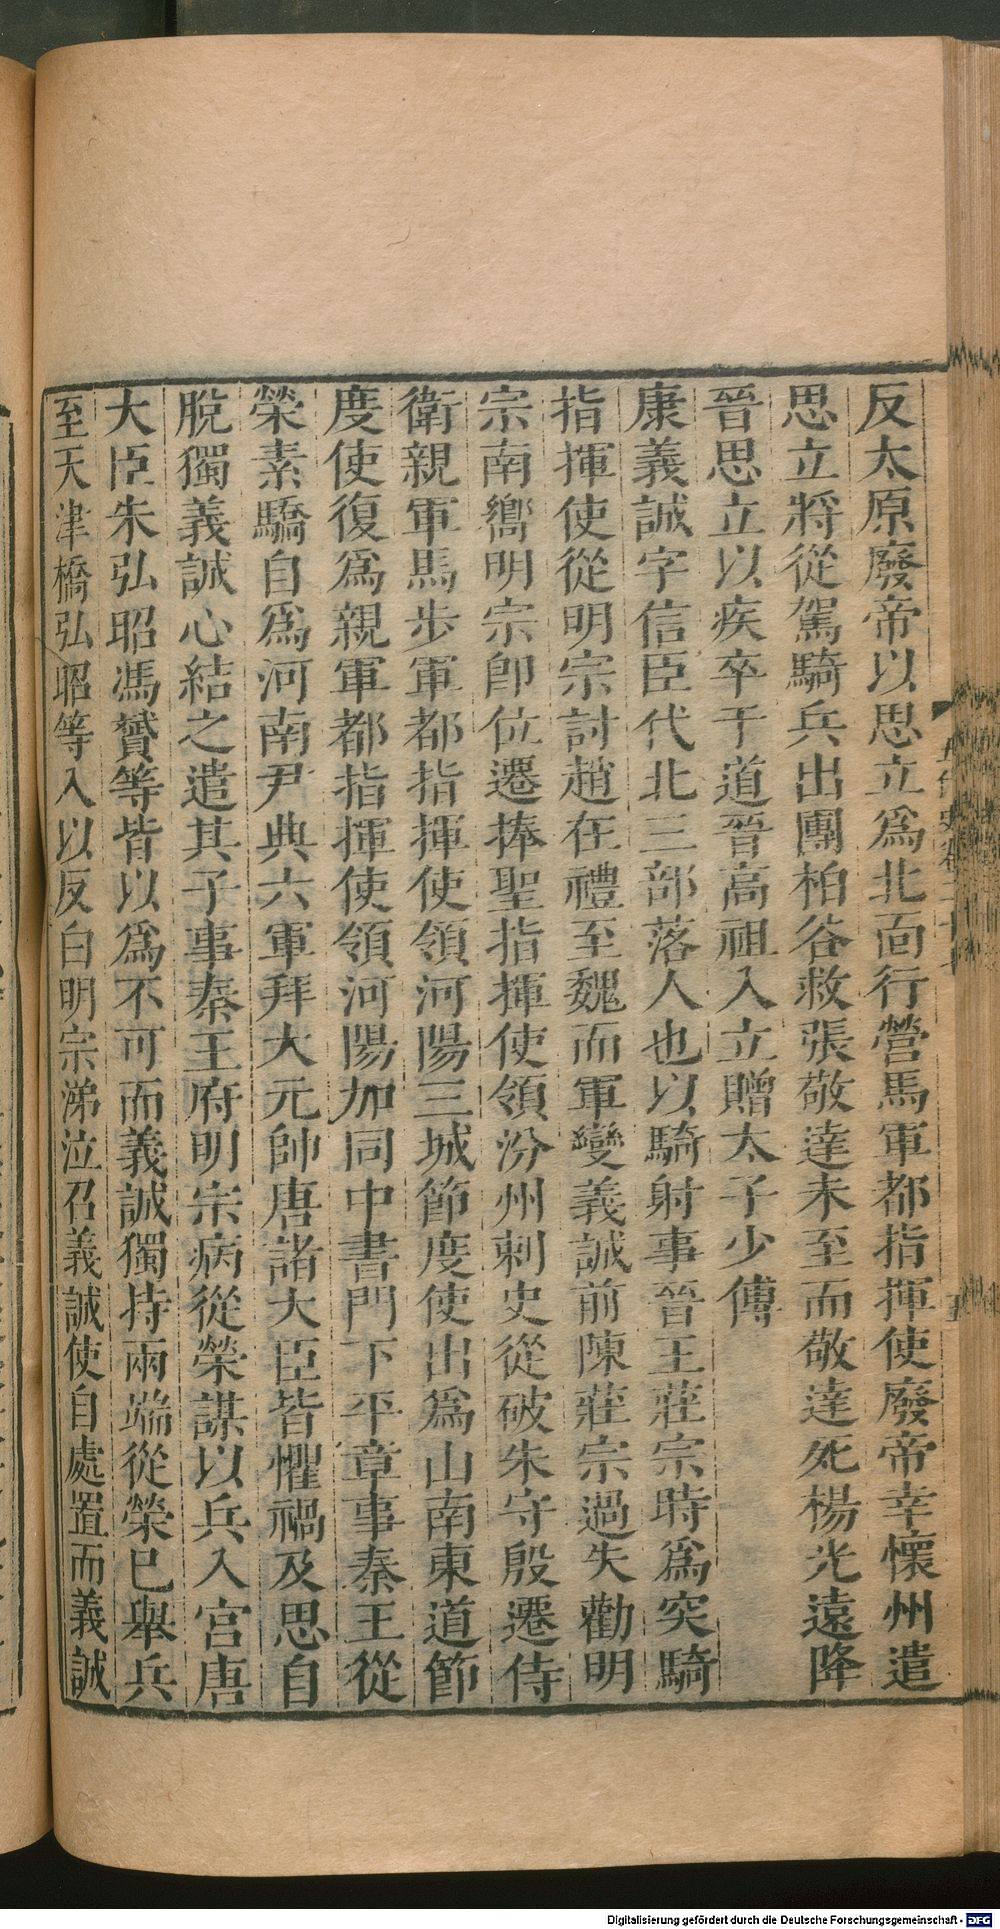 反太原廢帝以思立爲北面行營馬軍都指揮使廢帝幸懷州遣
思立將從駕騎兵出團柏谷救張敬達未至而敬達死楊光遠降
晉思立以疾卒于道晉高祖入立贈太子少傅
康義誠字信臣代北三部落人也以騎射事晉王莊宗時爲突騎
指揮使從明宗討趙在禮至魏而軍變義誠前陳莊宗過失勸明
宗南嚮明宗卽位遷捧聖指揮使領汾州刺史從破朱守殷遷侍
衛親軍馬步軍都指揮使領河陽三城節度使出爲山南東道節
度使復爲親軍都指揮使領河陽加同中書門下平章事秦王從
榮素驕自爲河南尹典六軍拜大元帥唐諸大臣皆懼禍及思自
脫獨義誠心結之遣其子事秦王府明宗病從榮謀以兵入宮唐
大臣朱弘昭馮贇等皆以爲不可而義誠獨持兩端從榮已舉兵
至天津橋弘昭等入以反白明宗涕泣召義誠使自處置而義誠
Digitalisierung gefördert durch die Deutsche Forschungsgemeinschaft - DFG